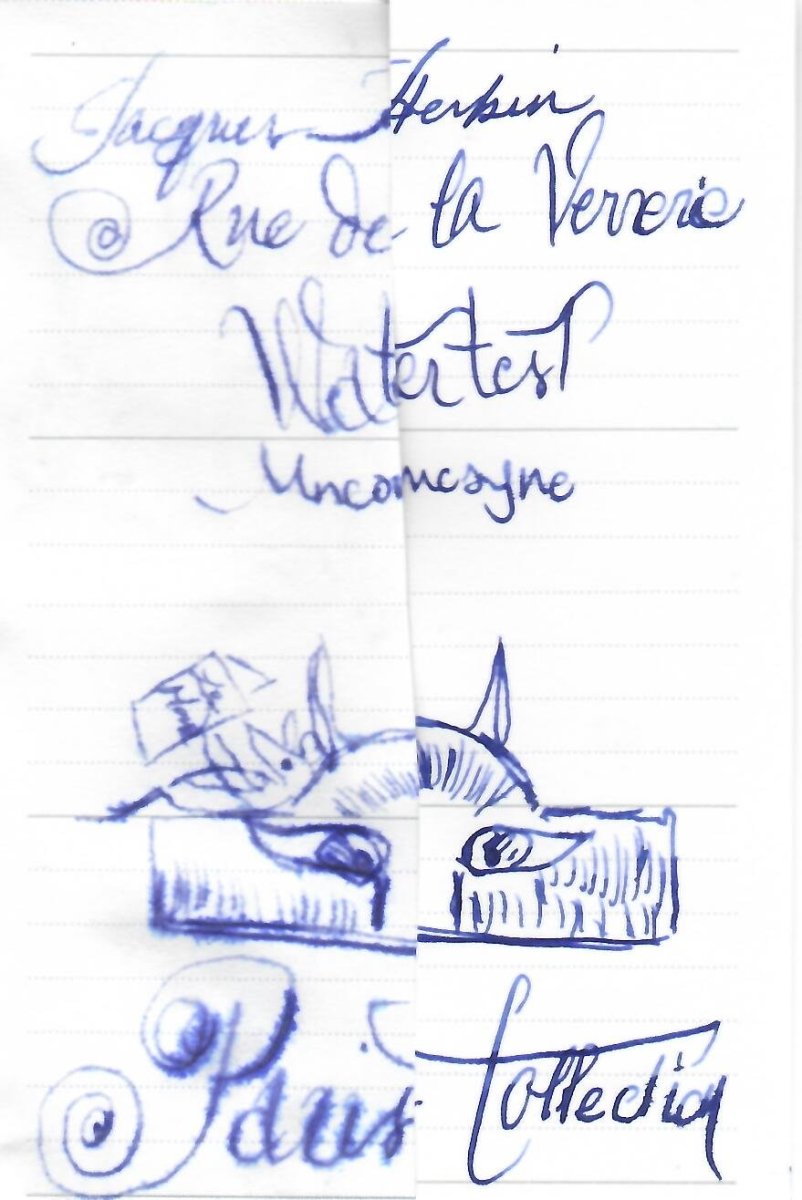 Jacques Herbin
Rue de la Verrerie
Water test
Uncomesyne
Paris Collection